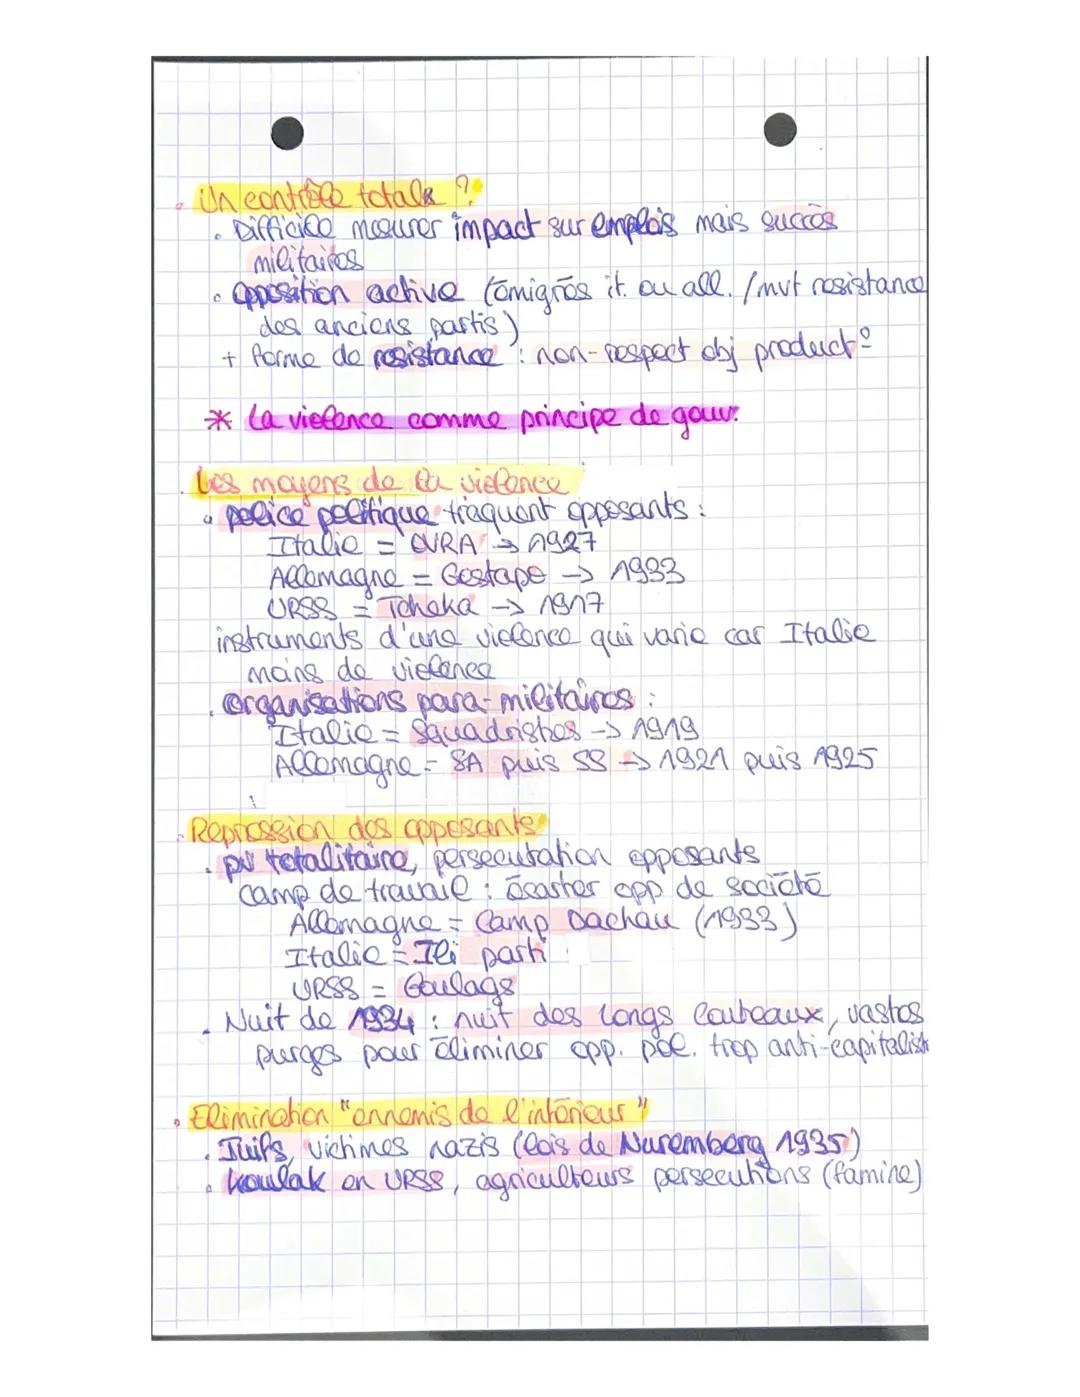 . Un contrôle totale ?
. Difficile mesurer impact sur emplois mais succès
militaires
. opposition active (émigrés it. ou all. / mvt resistance
des anciens partis)
+ forme de resistance : non-respect obj product°
* La violence comme principe de gouv.
. Les moyens de la violence
. police politique traquant opposants :
Italie = OVRA → 1927
Allemagne = Gestapo → 1933
URSS = Tcheka → 1917
instruments d'une violence qui varie car Italie
moins de violence
. organisations para-militaires :
Italie = Squadristes → 1919
Allemagne = SA puis SS → 1921 puis 1925
. Repression des opposants
. pv totalitaire, persecutation opposants
camp de travail : écarter opp de société
Allemagne = Camp Dachau (1933)
Italie = Ili parti
URSS = Goulags
. Nuit de 1934 : nuit des longs couteaux, vastes
purges pour éliminer opp. pol. trop anti-capitalist
. Elimination "ennemis de l'intérieur"
. Juifs, victimes nazis (lois de Nuremberg 1935)
. Koulak en URSS, agriculteurs persecutions (famine)